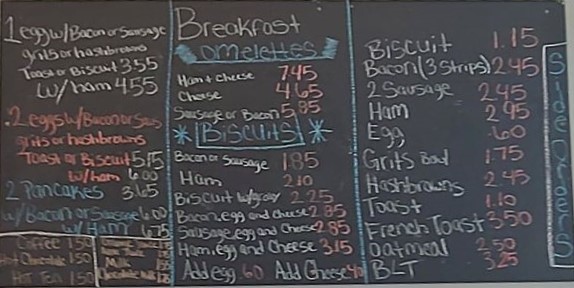 1 egg w/ Bacon or Sausage
grits or hashbrowns
Toast or Biscuit 355
w/ ham 455
2 eggs w/ Bacon or Saus
grits or hashbrowns
Toast or Biscuit 515
w/ ham 600
2 Pancakes 3.65
w/ Bacon or Sausage 600
w/ Ham 675
Coffee 150
Hot Chocolate 150
Hot Tea 150
Milk
Breakfast
Omelettes
Ham & Cheese 745
Cheese 465
Sausage or Bacon 5.85
Biscuits
Bacon or Sausage 185
Ham 210
Biscuit w/ gravy 2.25
Bacon, egg and cheese 2.85
Sausage, egg and Cheese 2.85
Ham, egg and Cheese 315
Add egg .60 Add Cheese 40
Biscuit 1.15
Bacon (3 Strips) 2.45
2 Sausage 2.45
Ham 2.95
Egg .60
Grits Bowl 1.75
Hashbrowns 2.45
Toast 1.10
French Toast 3.50
Oatmeal 2.50
BLT 3.25
Side Orders